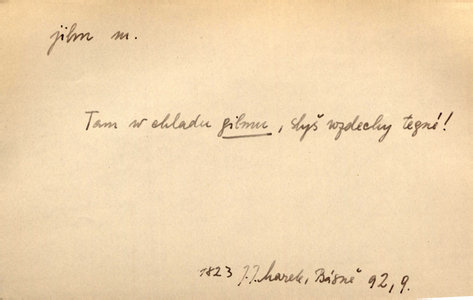 jilm m.
Tam w chladu gilmu, slyš wzdechy tegné!
1823 J. J. Marek, Básně 92, 9.